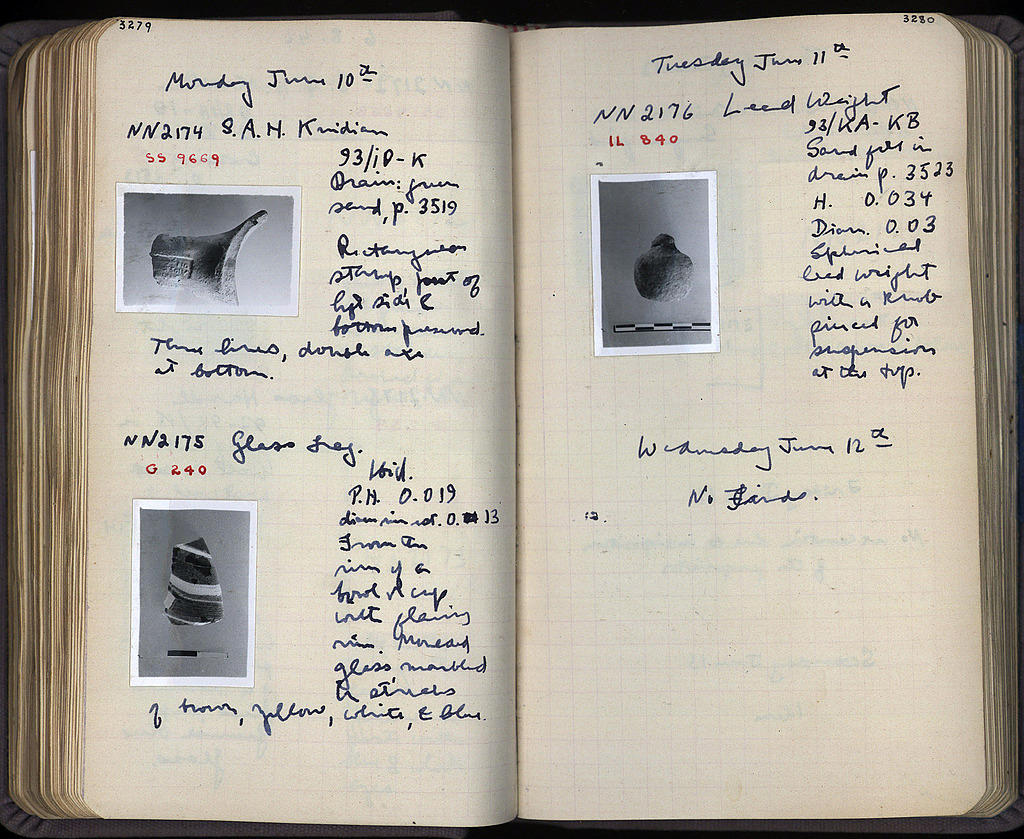 3279
Monday June 10th
NN2174 S.A.H. Knidian
SS 9669
93/ΙΘ-Κ
Drain: green
sand, p. 3519
Rectangular
stamp, part of
left side &
bottom preserved.
Three lines, double axe
at bottom.
NN2175 Glass frag.
G 240
Ibid.
P.H. 0.019
diam. in est. 0.13
From the
rim of a
bowl or cup
with flaring
rim. Moulded
glass marbled
in streaks
of brown, yellow, white, & blue.
3280
Tuesday June 11th
NN2176 Lead Weight
IL 840
93/ΚΑ-ΚΒ
Sand fill in
drain p. 3523
H. 0.034
Diam. 0.03
Spherical
lead weight
with a knob
pierced for
suspension
at the top.
Wednesday June 12th
No Finds.